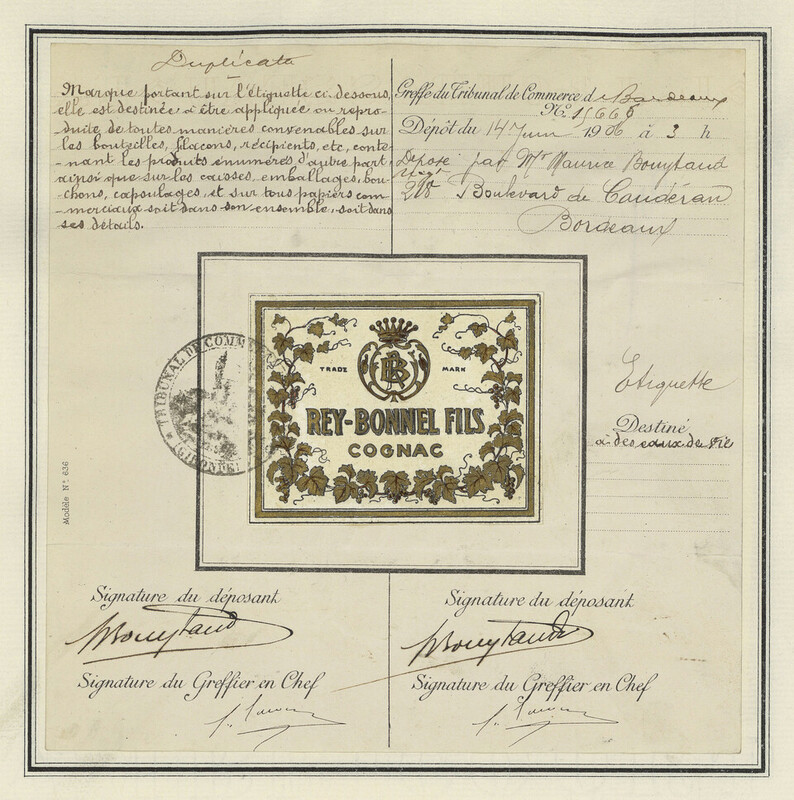 Duplicata
Marque portant sur l'étiquette ci-dessous,
elle est destinée à être appliquée ou repro-
duite de toutes manières convenables sur
les bouteilles, flacons, récipients, etc, conte-
nant les produits énumérés d'autre part
ainsi que sur les caisses, emballages, bou-
chons, capsulages, et sur tous papiers com-
merciaux soit dans son ensemble, soit dans
ses détails.
Greffe du Tribunal de Commerce d Bordeaux
No
Dépôt du 14 Juin 1906 à 3 h
Déposé par Mr Maurice Bouytaud
Boulevard de Caudéran
Bordeaux
TRIBUNAL DE COMMERCE
GIRONDE
TRADE MARK
RB
REY-BONNEL FILS
COGNAC
Etiquette
Destiné
à des eaux de vie
Modèle No 636
Signature du déposant
MBouytaud
Signature du Greffier en Chef
Signature du déposant
MBouytaud
Signature du Greffier en Chef